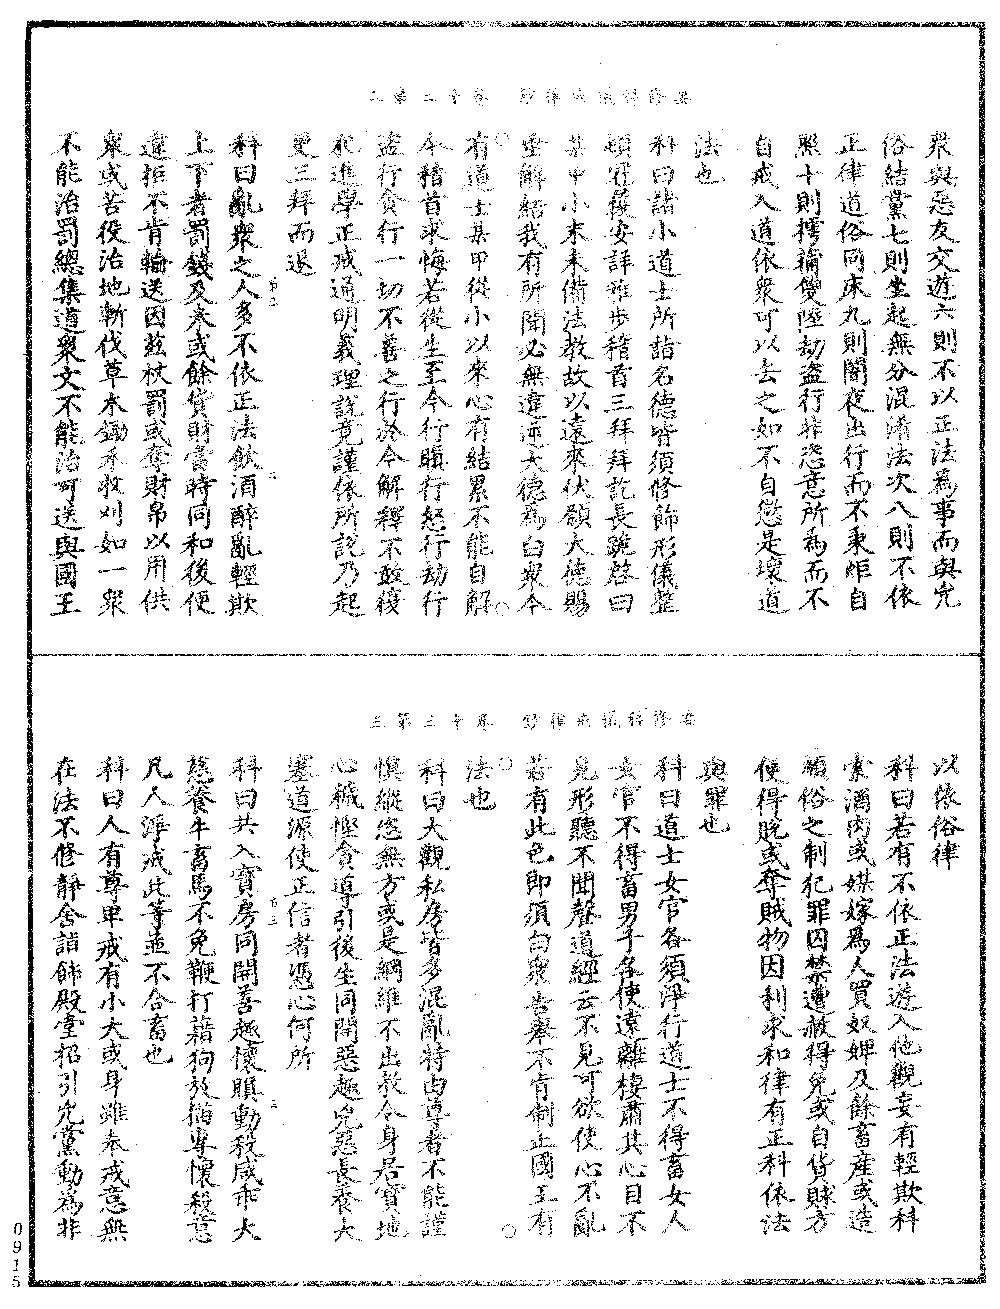 衆與惡友交遊六則不以正法為事而與兇
俗結黨七則坐起無分混淆法次八則不依
正律道俗同床九則闇夜出行而不秉炬自
照十則摴蒱雙陸劫盜行非恣意所為而不
自戒入道依衆可以去之如不自愆是壞道
法也
科曰諸小道士所詣名德皆須修飾形儀整
頓冠褐安詳雅步稽首三拜拜訖長跪啓曰
某甲小末未備法教故以遠來伏願大德賜
垂解結我有所聞必無違逆大德為白衆今
有道士某甲從小以來心有結累不能自解
今稽首求悔若從生至今行瞋行怒行劫行
盜行貪行一切不善之行於今解釋不敢復
犯進學正戒通明義理說竟謹依所說乃起
更三拜而退
科曰亂衆之人多不依正法飲酒醉亂輕欺
上下者罰錢及米或餘貨財當時同和後便
違拒不肯輸送因茲杖罰或奪財帛以用供
衆或苦役治地斬伐草木鋤禾收刈如一衆
不能治罰總集道衆文不能治可送與國王
以依俗律
科曰若有不依正法遊入他觀妄有輕欺科
索酒肉或媒嫁為人買奴婢及餘畜產或造
顧俗之制犯罪囚禁遭赦得免或自貨賕方
便得脫或奪賊物因利求和律有正科依法
與罪也
科曰道士女官各須淨行道士不得畜女人
女官不得畜男子各使遠離棲肅其心目不
見形聽不聞聲道經云不見可欲使心不亂
若有此色即須白衆告舉不肯制止國王有
法也
科曰大觀私房皆多混亂特由尊者不能謹
慎縱恣無方或是綱維不出教令身居寶地
心穢慳貪導引後生同開惡趣兇惡長養大
塞道源使正信者憑心何所
科曰共入寶房同開善趣懷瞋動殺咸乖大
慈養牛畜馬不免鞭打藉狗放猫專懷殺意
凡人淨戒此等並不合畜也
科曰人有尊卑戒有小大或身雖奉戒意無
在法不修靜舍詣飾殿堂招引兇黨動為非
0915